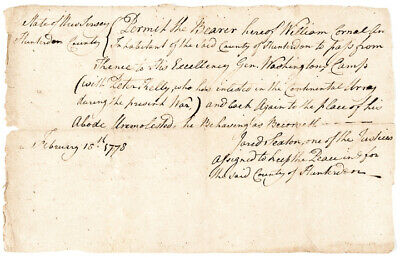 State of New Jersey
Hunterdon County
Permit the Bearer hereof William Cornal Sen
Inhabitant of the Said County of Hunterdon to pass from
Thence to His Excellency Gen. Washingtons Camp
(with Peter Kelly who has inlisted in the Continental Army
during the present War) and back Again to the place of his
Abode Unmolested, he Behaving as Becometh
February 18th 1778
Jared Sexton, one of the Justices
assigned to keep the Peace in & for
the Said County of Hunterdon